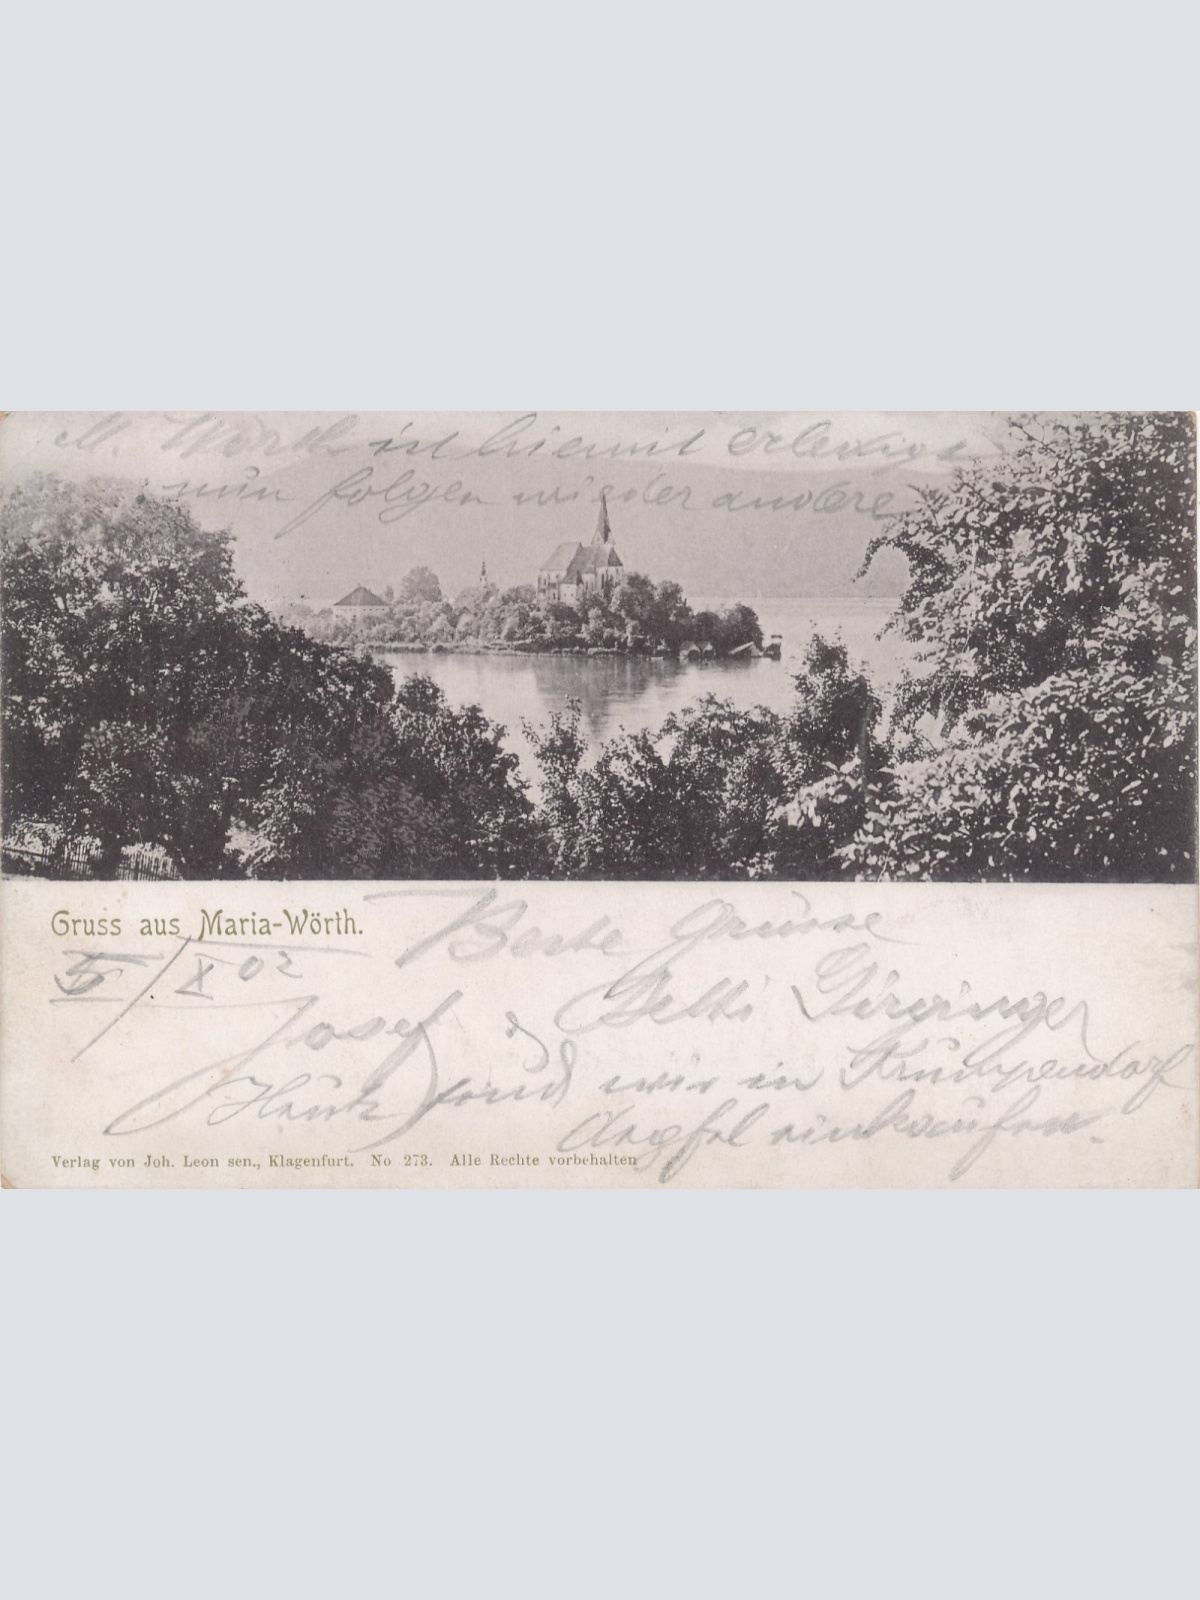 M. Wörth ist hiemit erledigt
nun folgen wieder andere
Gruss aus Maria-Wörth.
5/X 02
Beste Grüsse
Josef & Betti
Heute sind wir in Krumpendorf
Aepfel einkaufen.
Verlag von Joh. Leon sen., Klagenfurt. No 273. Alle Rechte vorbehalten